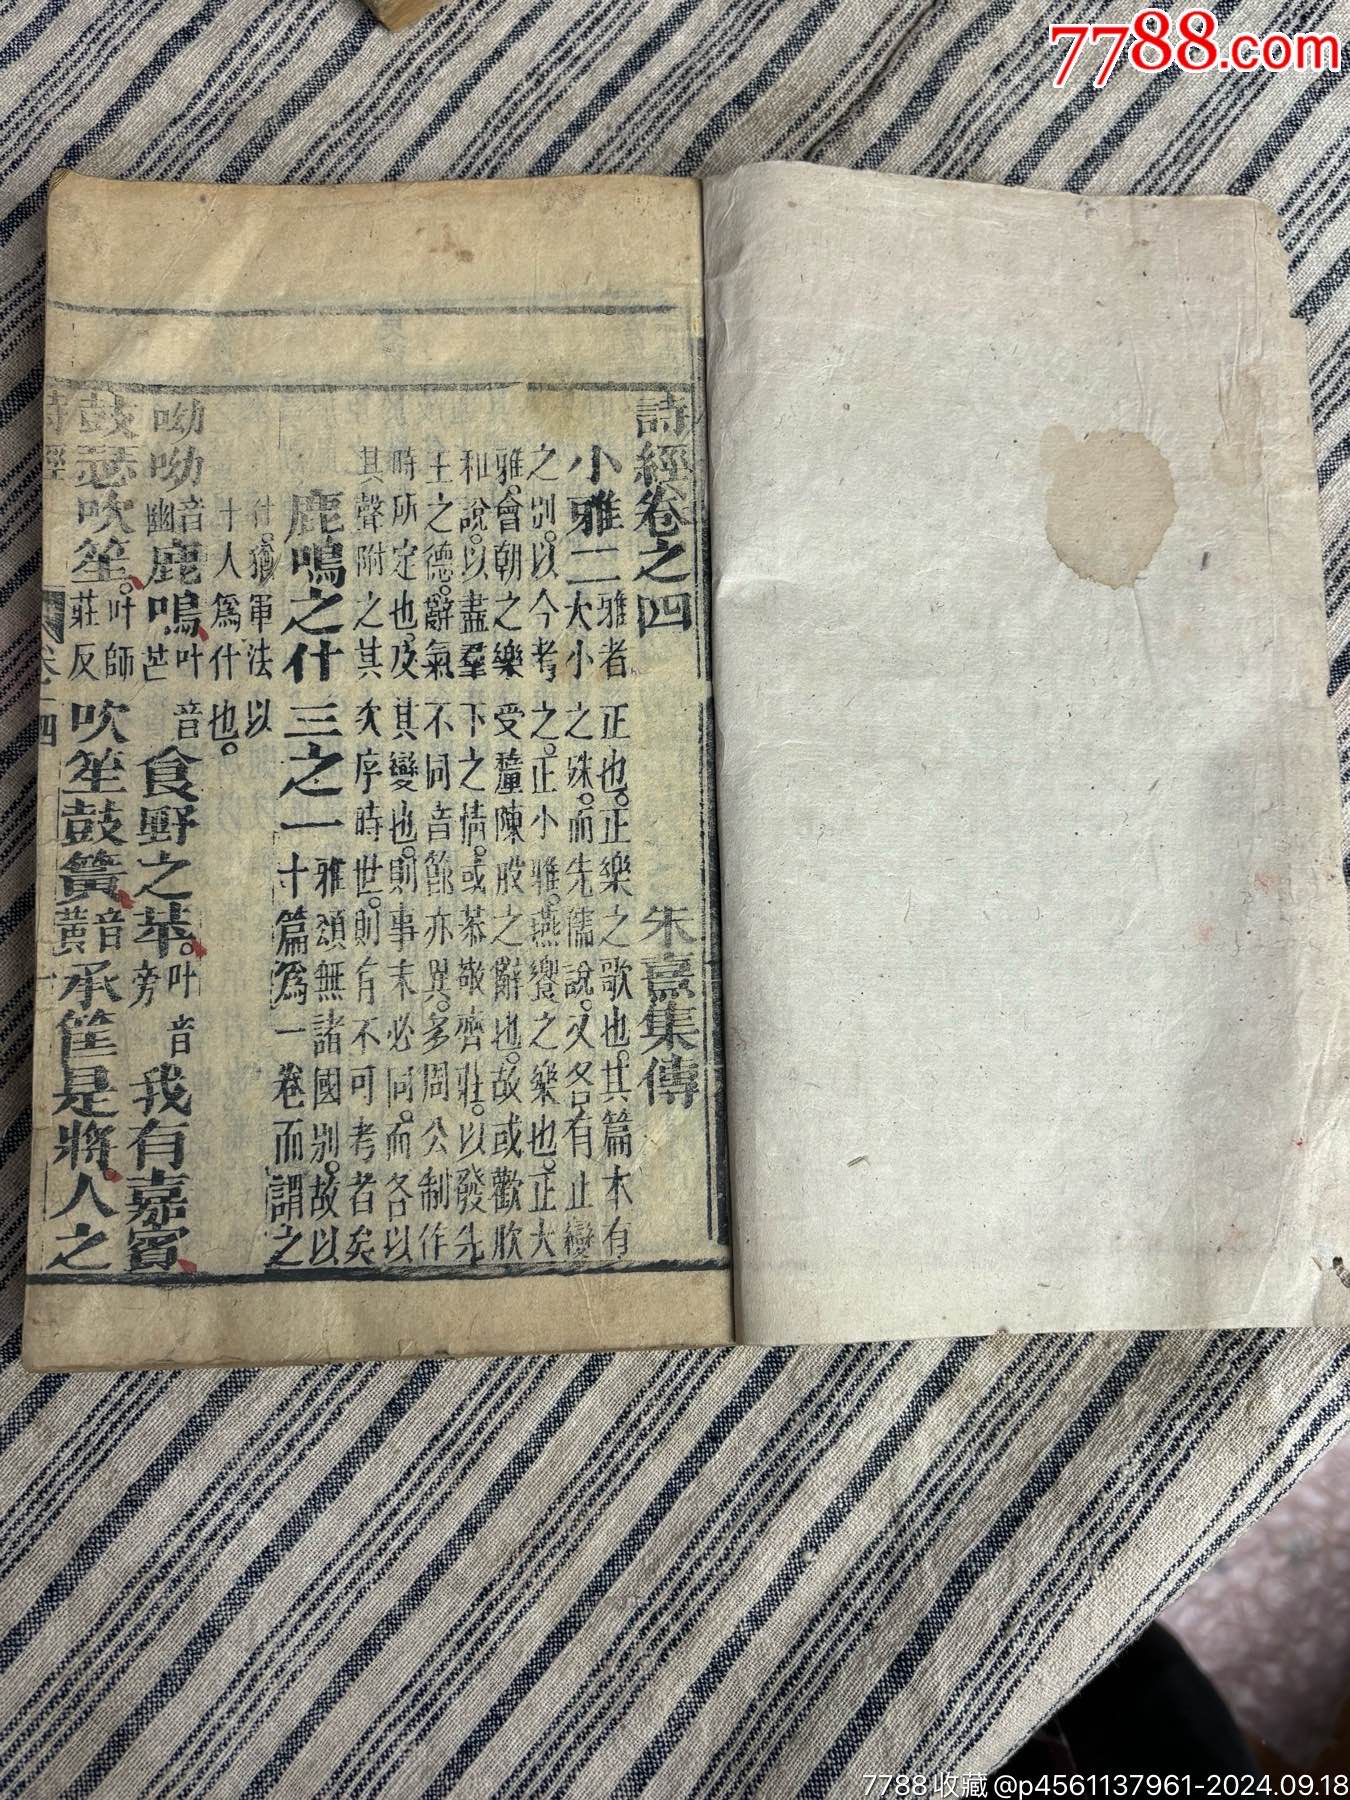 詩經卷之四 朱熹集傳
小雅二
雅者正也。正樂之歌也。其篇本有
大小之殊。而先儒說。又各有正變
之別。以今考之。正小雅。燕饗之樂也。正大
雅。會朝之樂。受釐陳戒之辭也。故或歡欣
和說。以盡羣下之情。或恭敬齊莊。以發先
王之德。辭氣不同音節亦異。多周公制作
時所定也。及其變也。則事未必同。而各以
其聲附之其次序時世。則有不可考者矣
鹿鳴之什三之一
雅頌無諸國別。故以
十篇爲一卷而謂之
什。猶軍法以
十人爲什也。
呦呦音幽鹿鳴、叶音芒食野之苹。叶音旁我有嘉賓、
鼓瑟吹笙。叶師莊反吹笙鼓簧、音黃承筐是將、人之
詩經 卷之四 一
7788.com
7788收藏@p4561137961-2024.09.18